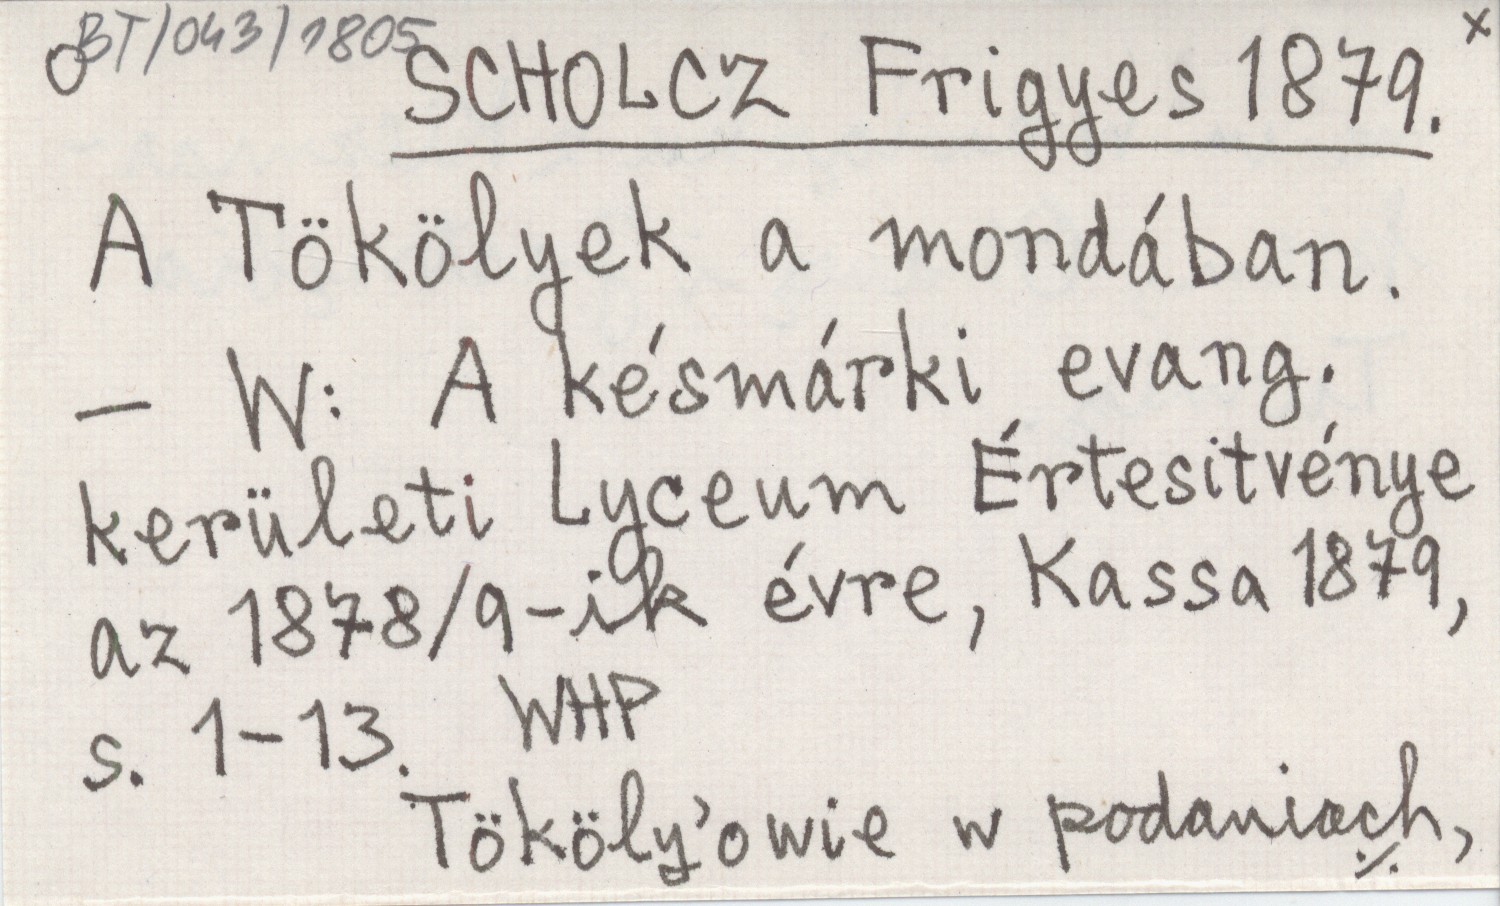 BT/043/1805
x
SCHOLCZ Frigyes 1879.
A Tökölyek a mondában.
— W: A késmárki evang.
kerületi Lyceum Értesitvénye
az 1878/9-ik évre, Kassa 1879,
s. 1-13. WHP
Tököly'owie w podaniach,
./.